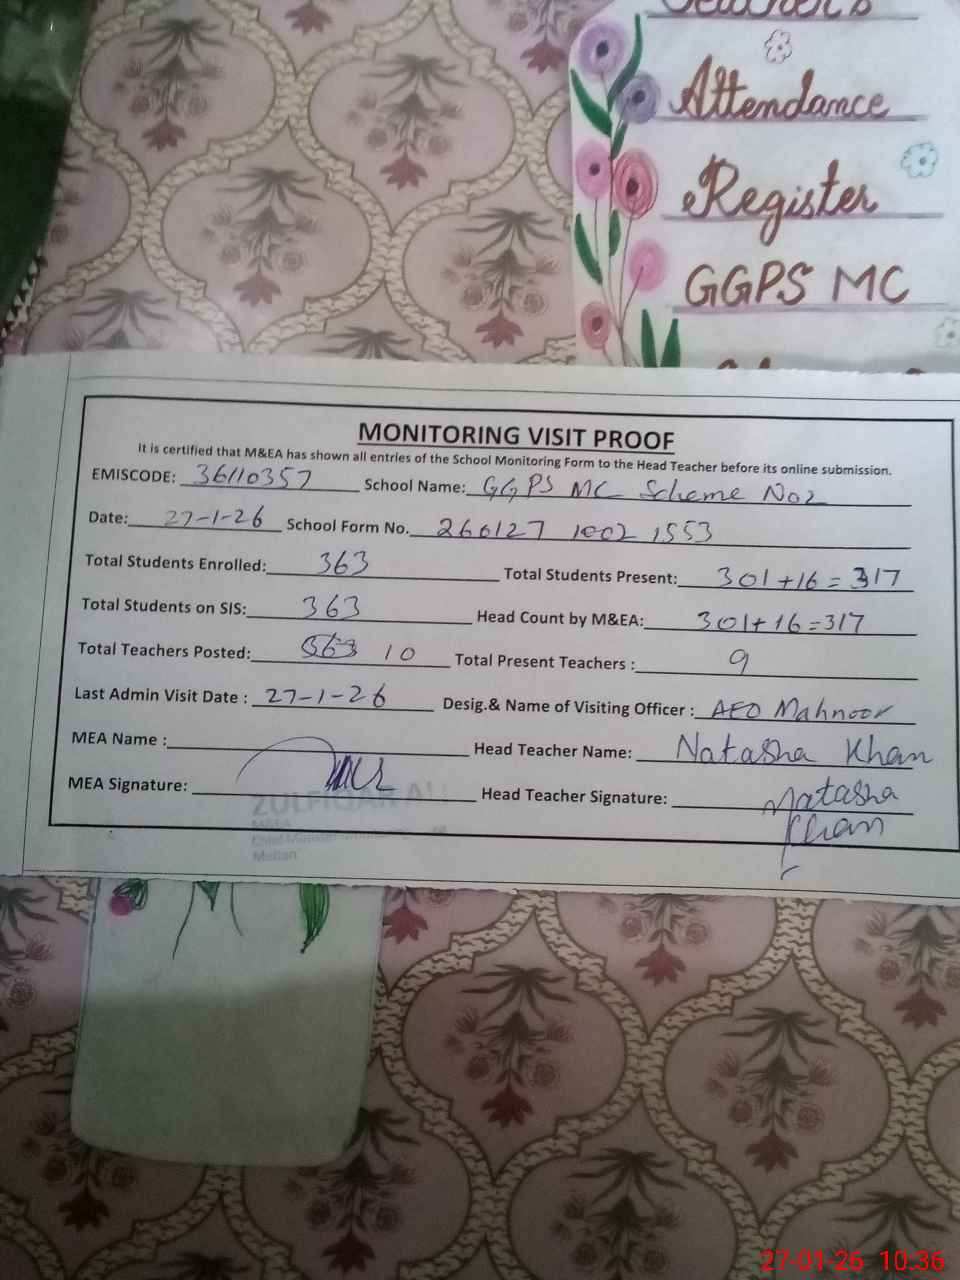 Teacher's
Attendance
Register
GGPS MC
MONITORING VISIT PROOF
It is certified that M&EA has shown all entries of the School Monitoring Form to the Head Teacher before its online submission.
EMISCODE: 36110357 School Name: GGPS MC Scheme No2
Date: 27-1-26 School Form No. 260127 1002 1553
Total Students Enrolled: 363 Total Students Present: 301+16=317
Total Students on SIS: 363 Head Count by M&EA: 301+16=317
Total Teachers Posted: 363 10 Total Present Teachers : 9
Last Admin Visit Date : 27-1-26 Desig.& Name of Visiting Officer : AEO Mahnoor
MEA Name : Head Teacher Name: Natasha Khan
MEA Signature: Head Teacher Signature: Natasha
Khan
ZULFIQAR ALI
Multan
27-01-26 10:36